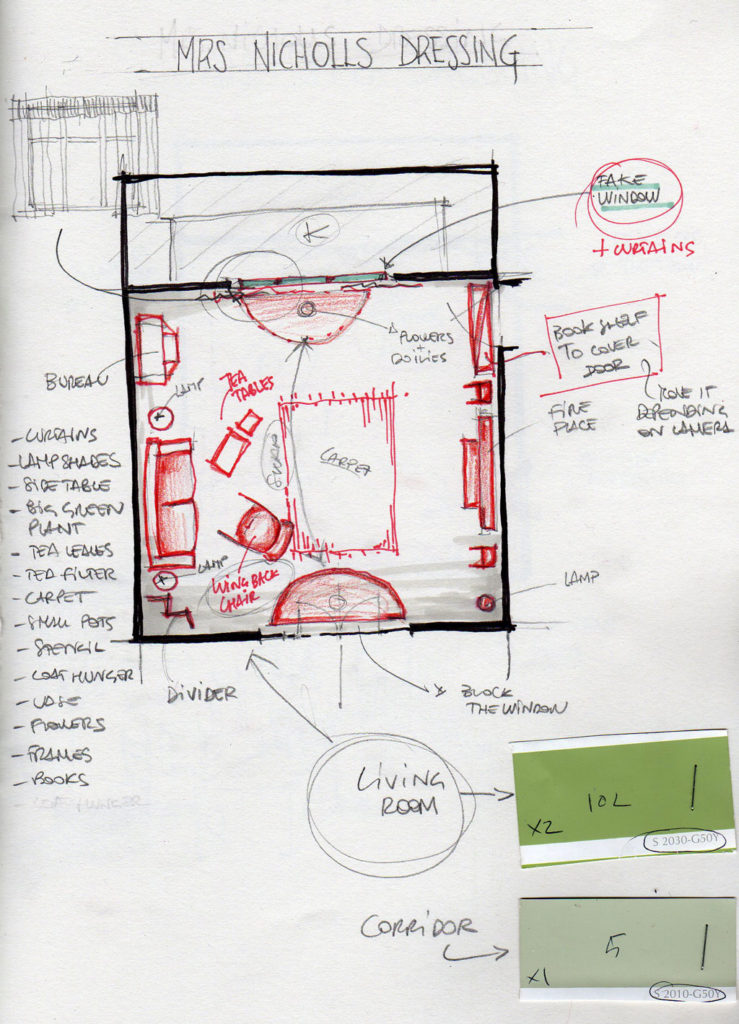 MRS NICHOLLS DRESSING
FAKE
WINDOW
+ CURTAINS
K
FLOWERS
+
DOILIES
BOOK SHELF
TO COVER
DOOR
(MOVE IT
DEPENDING
ON CAMERA
BUREAU
LAMP
TEA
TABLES
CARPET
FIRE
PLACE
- CURTAINS
- LAMPSHADES
- SIDE TABLE
- BIG GREEN
PLANT
- TEA LEAVES
- TEA FILTER
- CARPET
- SMALL POTS
- STENCIL
- COAT HUNGER
- VASE
- FLOWERS
- FRAMES
- BOOKS
- COAT HUNGER
LAMP
WING BACK
CHAIR
LAMP
DIVIDER
BLOCK
THE WINDOW
LIVING
ROOM
10L 1
X2
S 2030-G50Y
CORRIDOR
5 1
X1
S 2010-G50Y